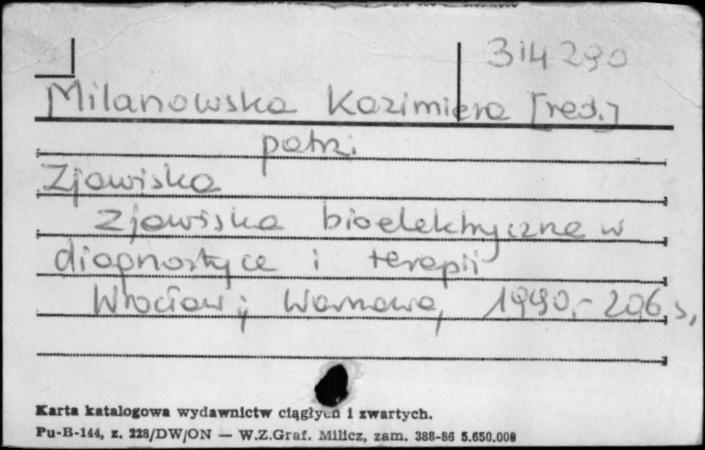 314290
Milanowska Kazimiera [red.]
patrz.
Zjawiska
Zjawiska bioelektryczne w
diagnostyce i terapii
Wrocław; Warszawa, 1990.- 206 s,
Karta katalogowa wydawnictw ciągłych i zwartych.
Pu-B-144, z. 228/DW/ON — W.Z.Graf. Milicz, zam. 388-86 5.650.000